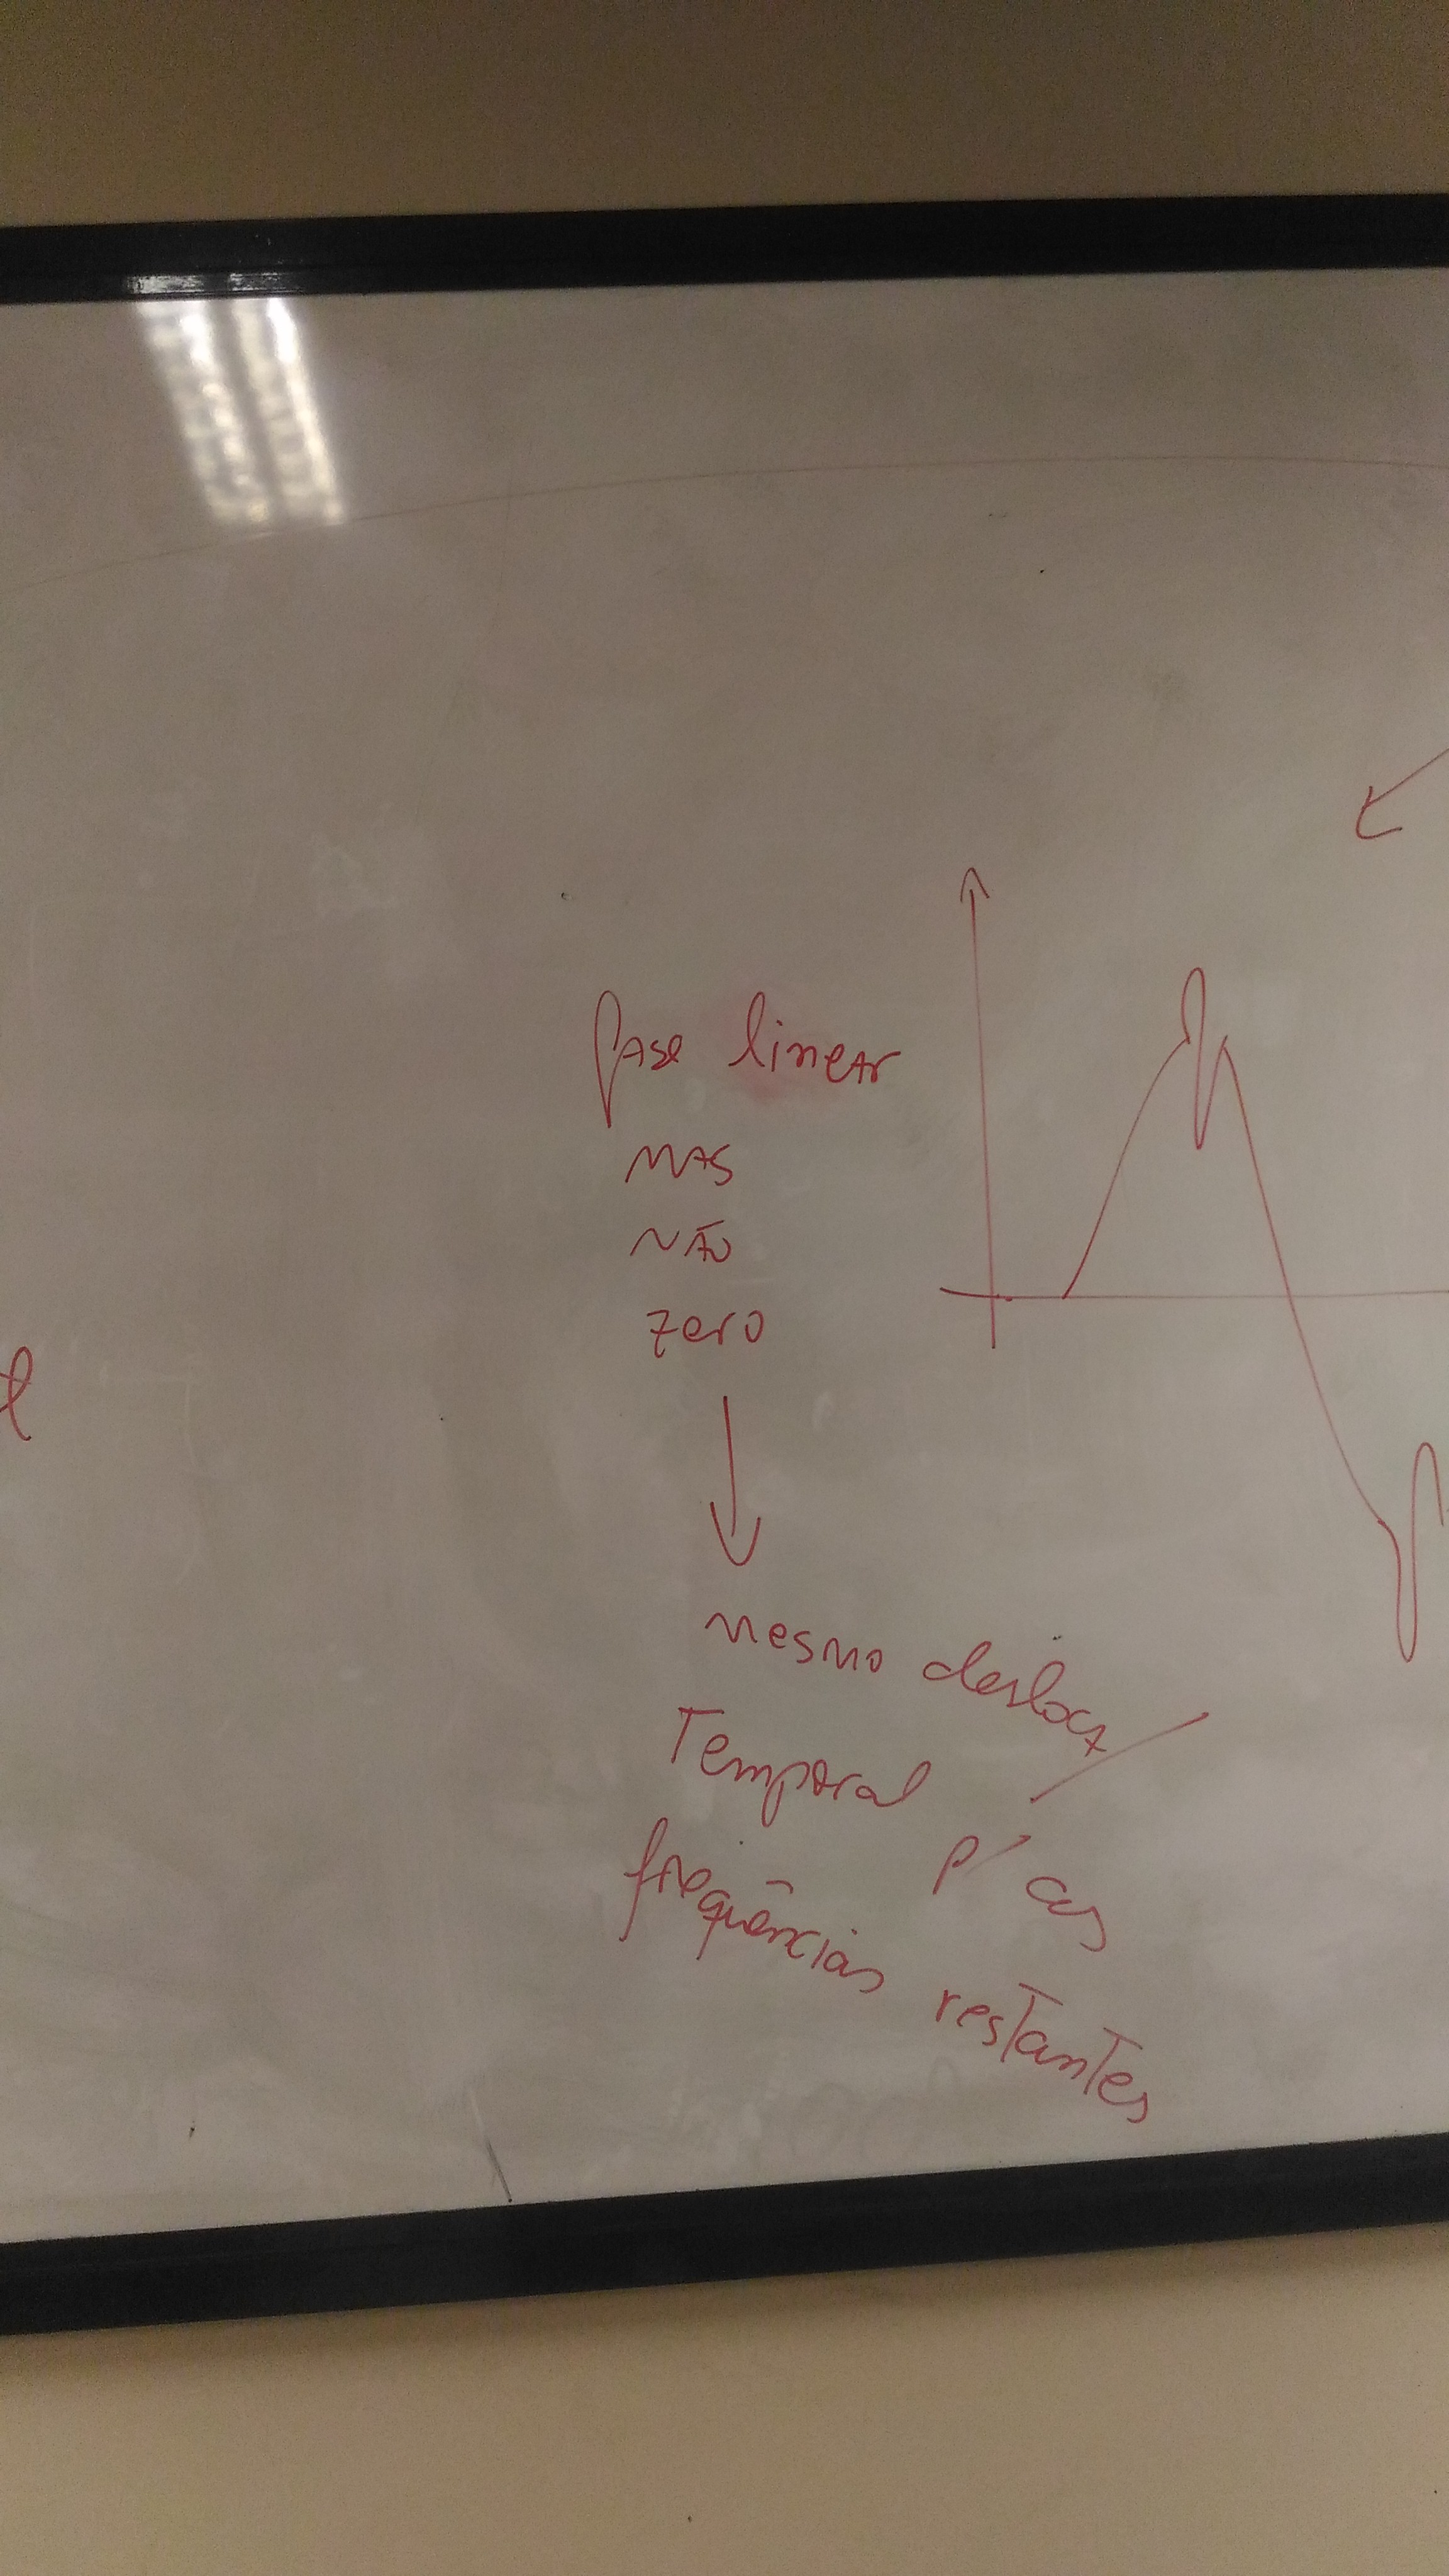 fase linear
MAS
NÃO
zero
mesmo desloca/
Temporal p/ as
freqüências restantes